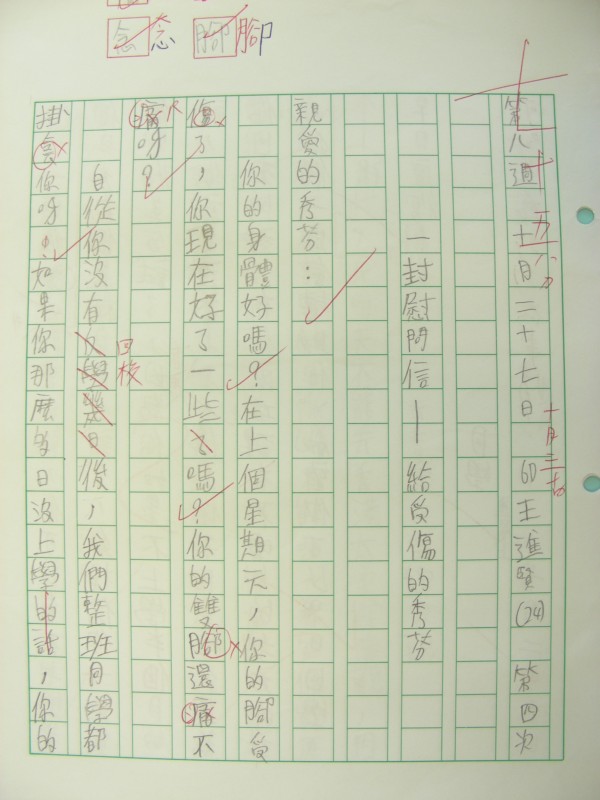 念念 腳腳
第八週 十月二十七日 60王進賢(24) 第四次
十五八分
十月三十
一封慰問信—給受傷的秀芬
親愛的秀芬：
你的身體好嗎？在上個星期天，你的腳受
傷了，你現在好了一些了嗎？你的雙腳還痛不
痛呀？
自從你沒有伙學幾日後，我們整班同學都
回校
掛念你呀！如果你那麼多日沒上學的話，你的